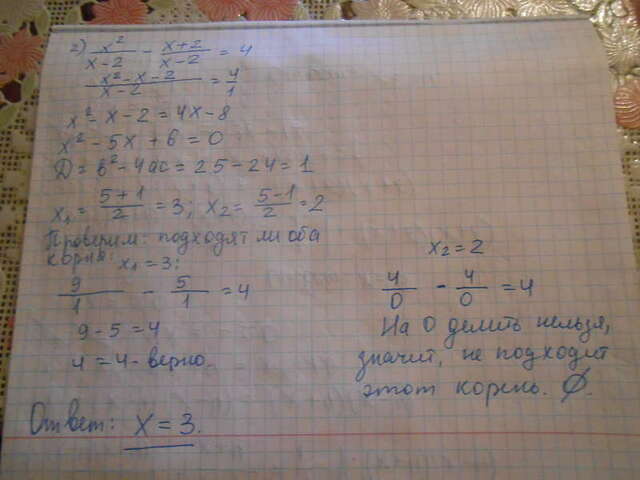 2) x²/(x-2) - (x+2)/(x-2) = 4
(x²-x-2)/(x-2) = 4/1
x²-x-2=4x-8
x²-5x+6=0
D=b²-4ac=25-24=1
x₁=(5+1)/2=3; x₂=(5-1)/2=2
Проверим: подходят ли оба
корня: x₁=3:
9/1 - 5/1 = 4
9-5=4
4=4-верно.
x₂=2
4/0 - 4/0 = 4
На 0 делить нельзя,
значит, не подходит
этот корень. Ø.
Ответ: x=3.